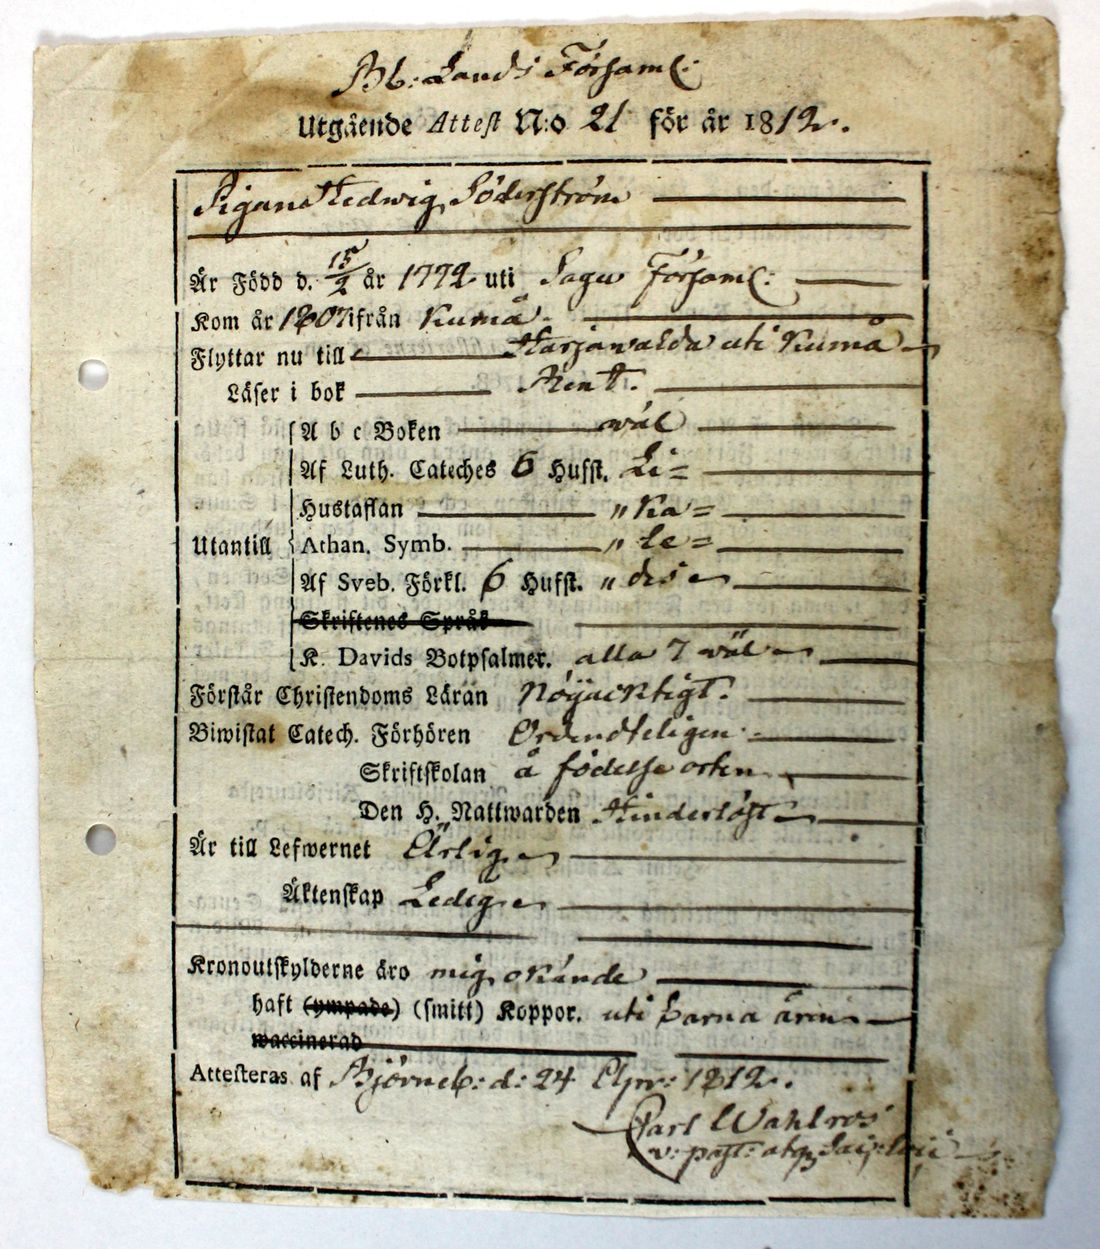 Bb: Lands Församl:
Utgående Attest N:o 21 för år 1812.
Pigan Hedwig Söderström
Är Född d. 15/2 år 1772 uti Sagu Församl:
Kom år 1807 ifrån Kumå
Flyttar nu till Harjawalda uti Kumå
Läser i bok Rent.
A b c Boken wäl
Af Luth. Cateches 6 Hufst. Li=
Hustaflan " ka=
Utantill Athan. Symb. " le=
Af Sveb. Förkl. 6 Hufst. " des
Skriftenes Språk
K. Davids Botpsalmer. alla 7 wäl
Förstår Christendoms Läran Nöijacktigt.
Biwistat Catech. Förhören Ordendteligen
Skriftskolan å födelse orten
Den H. Nattwarden Hinderlöst
Är till Lefwernet Ärlig
Äktenskap Ledig
Kronoutskylderne äro mig okände
haft (ympade) (smitt) Koppor. uti barna åren
waccinerad
Attesteras af Björneb: d: 24 Apr: 1812.
Carl Wahlroos
v: past: